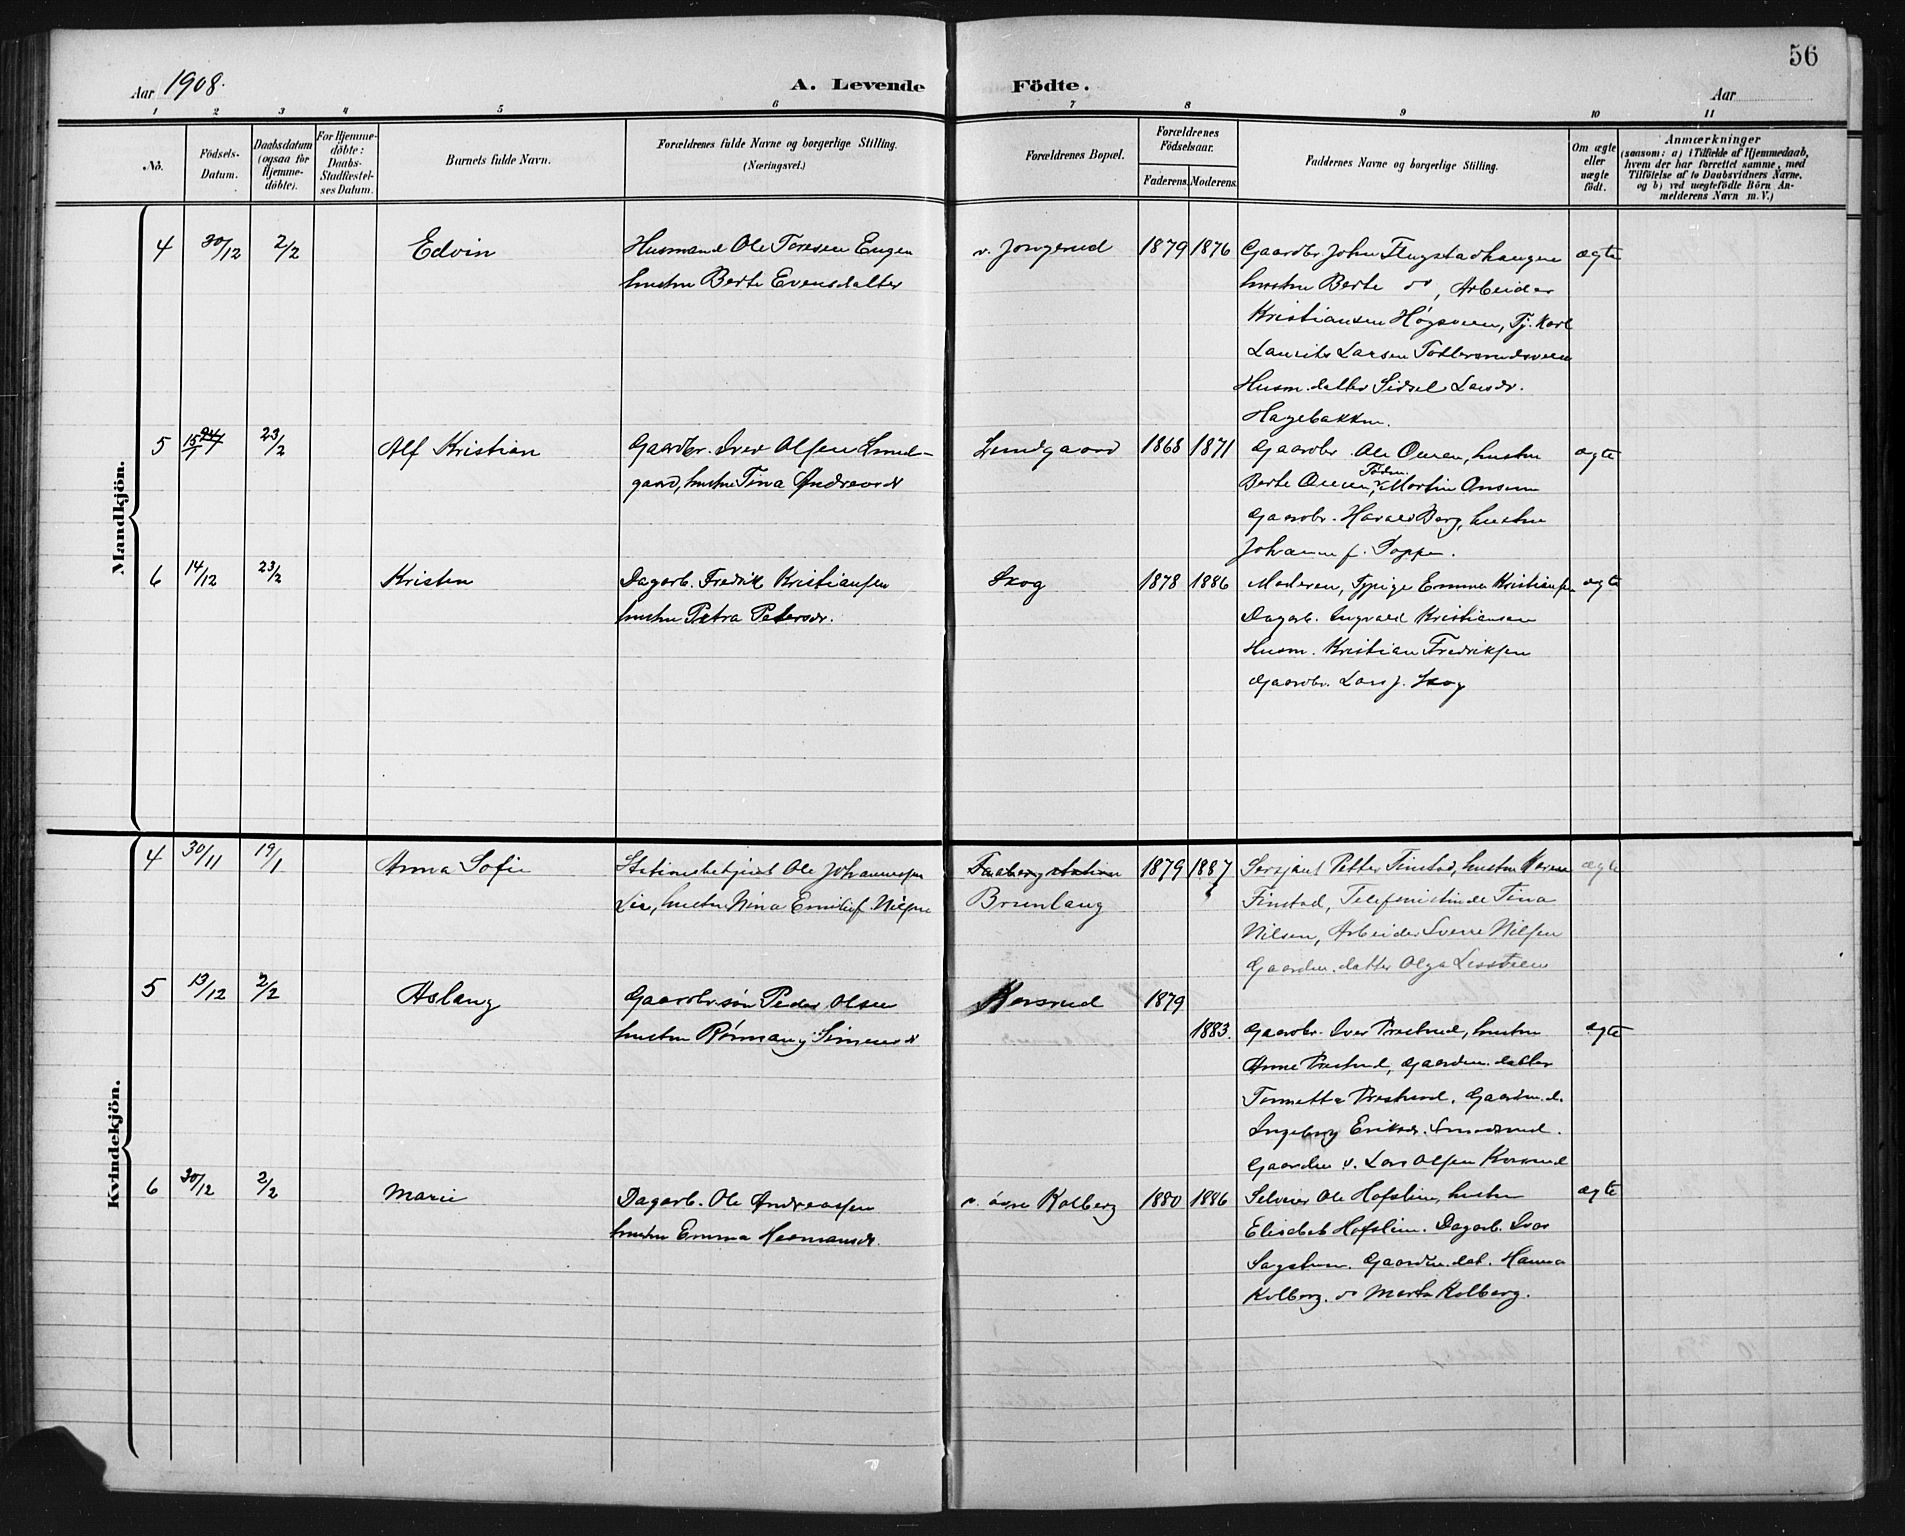 56
Aar 1908.
A. Levende Födte.
Aar
1 2 3 4 5 6 7 8 9 10 11
No.
Födsels-
Datum.
Daabsdatum
(ogsaa for
Hjemme-
döbte).
For Hjemme-
döbte:
Daabs-
Stadfæstel-
ses Datum.
Barnets fulde Navn.
Forældrenes fulde Navne og borgerlige Stilling.
(Næringsvei.)
Forældrenes Bopæl.
Forældrenes
Födselsaar.
Faderens. Moderens.
Faddernes Navne og borgerlige Stilling.
Om ægte
eller
uægte
födt.
Anmærkninger
(saasom: a) i Tilfælde af Hjemmedaab,
hvem der har forrettet samme, med
Tilföielse af to Daabsvidners Navne,
og b) ved uægtefödte Börn An-
melderens Navn m. V.)
Mandkjön.
4 30/12 2/2 Edvin Husmand Ole Toresen Engen v. Jorgerud 1879 1876 Gaardbr John Flugstadhaugen ægte
hustru Berte Evensdatter hustru Berte do, Arbeider
Kristiansen Høgsveen, Tj. Karl
Laurits Larsen
Husm. datter Sidsel Larsdr.
Hagebakken.
5 15/1 23/2 Alf Kristian Gaardbr. Iver Olsen Lund- Lundgaard 1868 1871 Gaardbr Ole Ouren, hustru ægte
gaard, hustru Tina Andreasd. Berte Ouren, Martin
Gaardbr. Harald Berg, hustru
Johanne f.
6 14/12 23/2 Kristen Dagarb. Fredrik Kristiansen Skog 1878 1886 Moderen, Tjpige Emma Kristiansen ægte
hustru Petra Petersdr. Dagarb. Ingvald Kristiansen
Husm. Kristian Fredriksen
Gaardbr. Lars J. Skog
Kvindekjön.
4 30/11 19/1 Anna Sofie Stationsbetjent Ole Johannessen Faaberg station 1879 1887 Sersjant Petter Finstad, hustru Karen ægte
Lie, hustru Nina Emilie f. Nilsen Brunlaug Finstad, Telefonistinde Tina
Nilsen, Arbeider Sverre Nilsen
Gaardm. datter Olga
5 13/12 2/2 Aslaug Gaardbr.søn Peder Olsen Korsrud 1879
hustru Rønnaug Simensd. 1883. Gaardbr. Iver Prestrud, hustru ægte
Anne Prestrud, Gaardm. datter
Tonnetta Prestrud, Gaardm. d.
Ingeborg Eriksdr. Smedsrud.
Gaardm v. Lars Olsen Korsrud
6 30/12 2/2 Marie Dagarb. Ole Andreassen v. övre Kolberg 1880 1886 Selveier Ole Hofslien, hustru ægte
hustru Emma Hermansdr. Elisabet Hofslien. Dagarb. Ivar
Sagstuen. Gaardm. dat. Hanna
Kolberg. do Marta Kolberg.